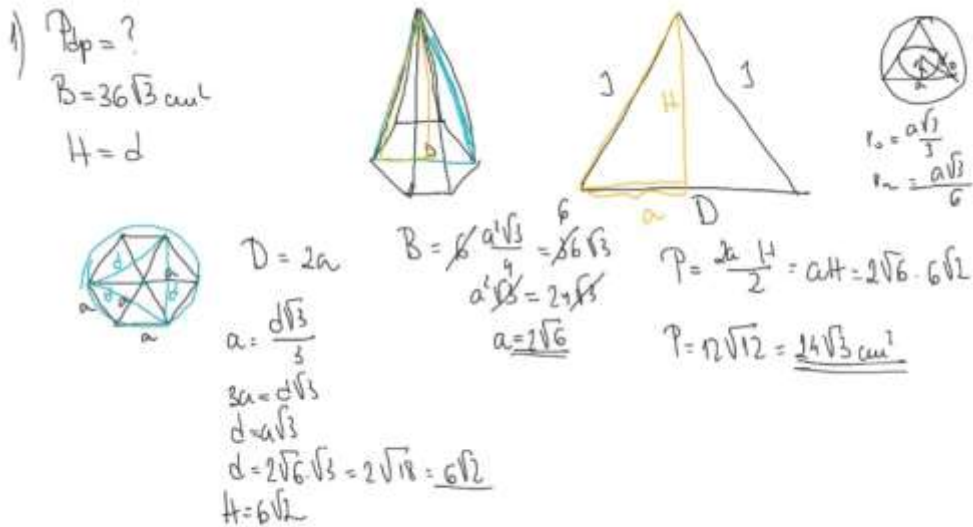 1) Pdp = ?
B = 36√3 cm²
H = d
s
H
s
a
D
a
r₀ = a√3/3
rᵤ = a√3/6
d
a
d
a
a
D = 2a
a = d√3/3
3a = d√3
d = a√3
d = 2√6·√3 = 2√18 = 6√2
H = 6√2
B = 6 a²√3/4 = 36√3
6
a²√3 = 24√3
a = 2√6
P = 2a·H/2 = aH = 2√6·6√2
P = 12√12 = 24√3 cm²